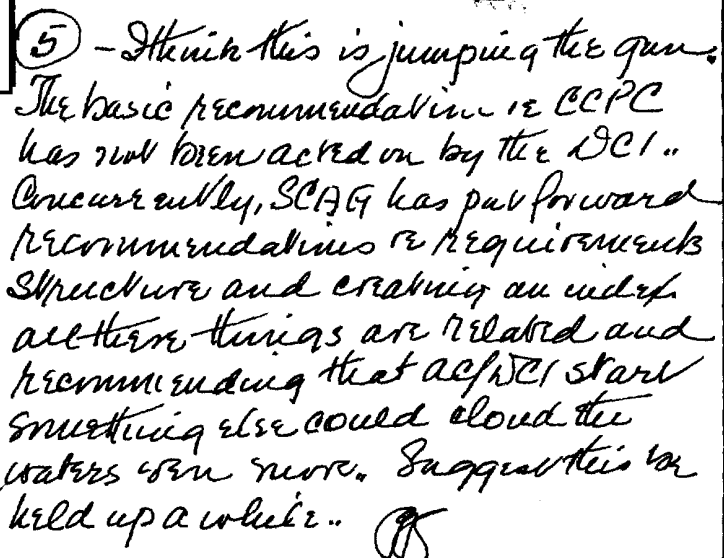 5 - I think this is jumping the gun.
The basic recommendation re CCPC
has not been acted on by the DCI..
Concurrently, SCAG has put forward
recommendations re requirements
structure and creating an index.
all these things are related and
recommending that AC/DCI start
something else could cloud the
waters even more. Suggest this be
held up a while..